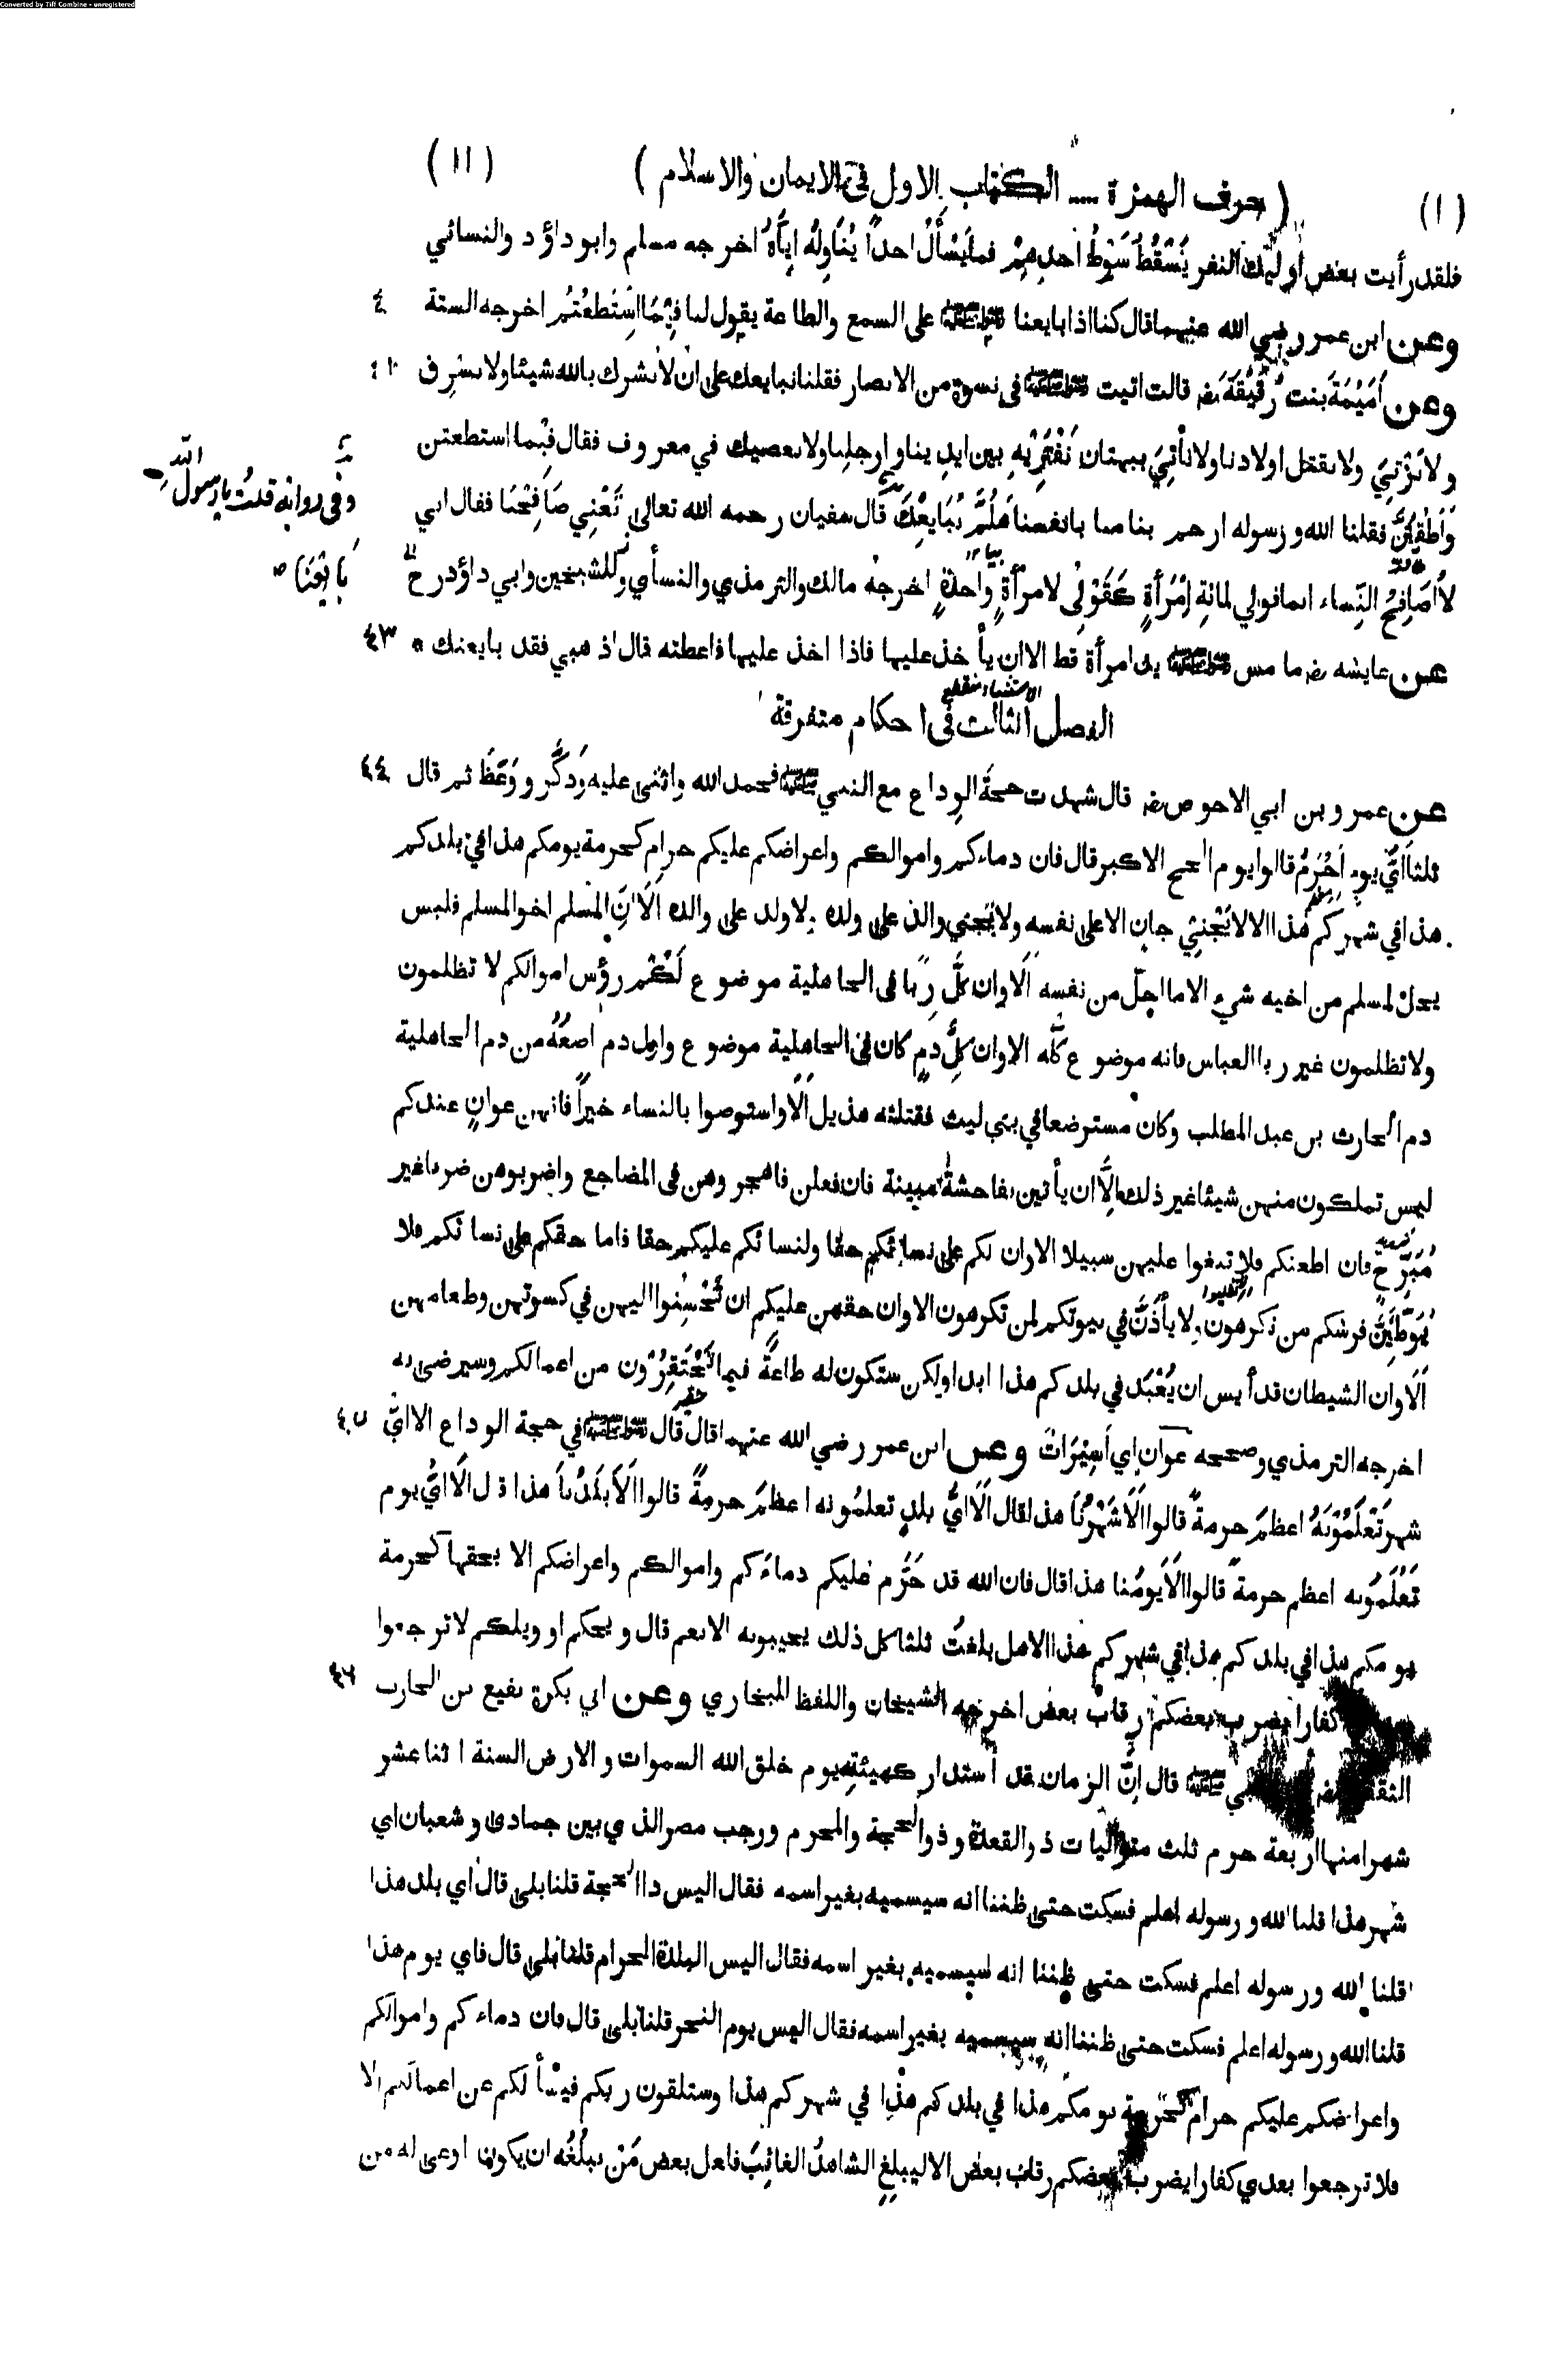 Converted by Tiff Combine - unregistered
(١) (حرف الهمزة ..... الكتاب الاول في الايمان والاسلام) (١١)
فلقد رأيت بعض أولئك النفر يَسْقُطُ سَوْطُ أحدِهِمْ فما يَسْأَلُ احدًا يُنَاوِلُهُ اياَّهُ اخرجه مسلم وابو داؤد والنسائي
وعن ابن عمر رضي الله عنهما قال كنا اذا بايعنا ﷺ على السمع والطاعة يقول لنا فِيْمَا اسْتَطَعْتُم اخرجه الستة
وعن أُمَيْمَةَ بنت رُقَيْقَةَ رضـ قالت اتيت ﷺ في نسوة من الانصار فقلنا نبايعك على ان لا نشرك بالله شيئا ولا نسرق
ولا نَزْنِيَ ولا نقتل اولادنا ولا نأتِيَ ببهتان نَفْتَرِيْهِ بين ايدينا وارجلنا ولا نعصيك في معروف فقال فيما استطعتن
وَأَطَقْتُنَّ فقلنا الله ورسوله ارحم بنا منا بانفسنا هَلُمَّ نُبَايِعْكَ قال سفيان رحمه الله تعالى تَعْنِي صَافِحْنَا فقال اني
وفي رواية قلت يا رسول الله
بايِعْنَا
لا أُصَافِحُ النِّساء انما قولي لمائةِ اِمْرَأةٍ كَقَوْلِي لامرأةٍ واحدةٍ اخرجه مالك والترمذي والنسأي وللشيخين وابي داؤد رح
عن عايشه رضـ ما مس ﷺ يد امرأة قط الا ان يأخذ عليها فاذا اخذ عليها فاعطته قال اذهبي فقد بايعتك ٤٣
الاستثناء منقطع
الفصل الثالث في احكام متفرقة
عن عمرو بن ابي الاحوص رضـ قال شهدت حجةَ الوداع مع النبي ﷺ فحمد الله واثنى عليه وذكَّر ووَعَظَ ثم قال ٤٤
ثلثاً أيُّ يومٍ أَحْرَمُ قالوا يوم الحج الاكبر قال فان دماءكم واموالكم واعراضكم عليكم حرام كحرمة يومكم هذا في بلدكم
هذا في شهركم هذا الا لا يَجْنِيْ جانٍ الا على نفسه ولا يَجني والد على ولده ولا ولد على والده اَلَا اِنَّ المسلم اخو المسلم فليس
يحل لمسلم من اخيه شيء الا ما احلّ من نفسه اَلَا وان كلَّ رِبًا في الجاهلية موضوع لَكُمْ رؤس اموالكم لا تظلمون
ولا تظلمون غير ربا العباس فانه موضوع كلُّه الا وان كلَّ دمٍ كان في الجاهلية موضوع واول دم اضعُهُ من دم الجاهلية
دم الحارث بن عبد المطلب وكان مسترضعا في بني ليث فقتلته هذيل اَلَا واستوصوا بالنساء خيراً فانهن عوانٍ عندكم
ليس تملكون منهن شيئا غير ذلك اِلَّا ان يأتين بفاحشة مبينة فان فعلن فاهجروهن في المضاجع واضربوهن ضربا غير
مُبَرِّحٍ فان اطعنكم فلا تبغوا عليهن سبيلا الا وان لكم على نسائكم حقا ولنسائكم عليكم حقا فاما حقكم على نسائكم فلا
يُوَطِّئْنَ فرشكم من تكرهون ولا يأْذَنَّ في بيوتكم لمن تكرهون الا وان حقهن عليكم ان تُحْسِنُوا اليهن في كسوتهن وطعامهن
اَلَا وان الشيطان قد أيس ان يُعْبَدَ في بلدكم هذا ابدا ولكن ستكون له طاعةٌ فيما تَحْتَقِرُوْن من اعمالكم وسيرضى به
اخرجه الترمذي وصححه عوان اي اَسِيْرَات وعن ابن عمر رضي الله عنهما قال قال ﷺ في حجة الوداع الا ايُّ
شهر تَعْلَمُوْنَهُ اعظمُ حرمةً قالوا اَلَا شَهْرُنَا هذا قال اَلَا ايُّ بلدٍ تعلمُونه اعظمُ حرمةً قالوا اَلَا بَلَدُنا هذا قال اَلَا ايُّ يوم
تَعْلَمُونه اعظم حرمةً قالوا اَلَا يومُنا هذا قال فان الله قد حَرَّم عليكم دماءَكم واموالكم واعراضكم الا بحقها كحرمة
يومكم هذا في بلدكم هذا في شهركم هذا الا هل بلغتُ ثلثا كل ذلك يجيبونه الا نعم قال ويحكم او ويلكم لا ترجعوا
كفارا يضرب بعضكم رقاب بعض اخرجه الشيخان واللفظ للبخاري وعن ابي بكرة نفيع بن الحارث ٤٦
ﷺ قال اِنَّ الزمان قد استدار كهيئته يوم خلق الله السموات والارض السنة اثنا عشر
شهرا منها اربعة حرم ثلث متواليات ذو القعدة وذو الحجة والمحرم ورجب مضر الذي بين جمادى وشعبان اي
شهر هذا قلنا الله ورسوله اعلم فسكت حتى ظننا انه سيسميه بغير اسمه فقال اليس ذا الحجة قلنا بلى قال اي بلد هذا
قلنا الله ورسوله اعلم فسكت حتى ظننا انه سيسميه بغير اسمه فقال اليس البلدة الحرام قلنا بلى قال فاي يوم هذا
قلنا الله ورسوله اعلم فسكت حتى ظننا انه سيسميه بغير اسمه فقال اليس يوم النحر قلنا بلى قال فان دماءكم واموالكم
واعراضكم عليكم حرام كحرمة يومكم هذا في بلدكم هذا في شهركم هذا وستلقون ربكم فيسأَلكم عن اعمالكم الا
فلا ترجعوا بعدي كفارا يضرب بعضكم رقاب بعض الا ليبلغِ الشاهدُ الغائبَ فلعل بعض مَنْ يبلُغُه ان يكون اوعى له من